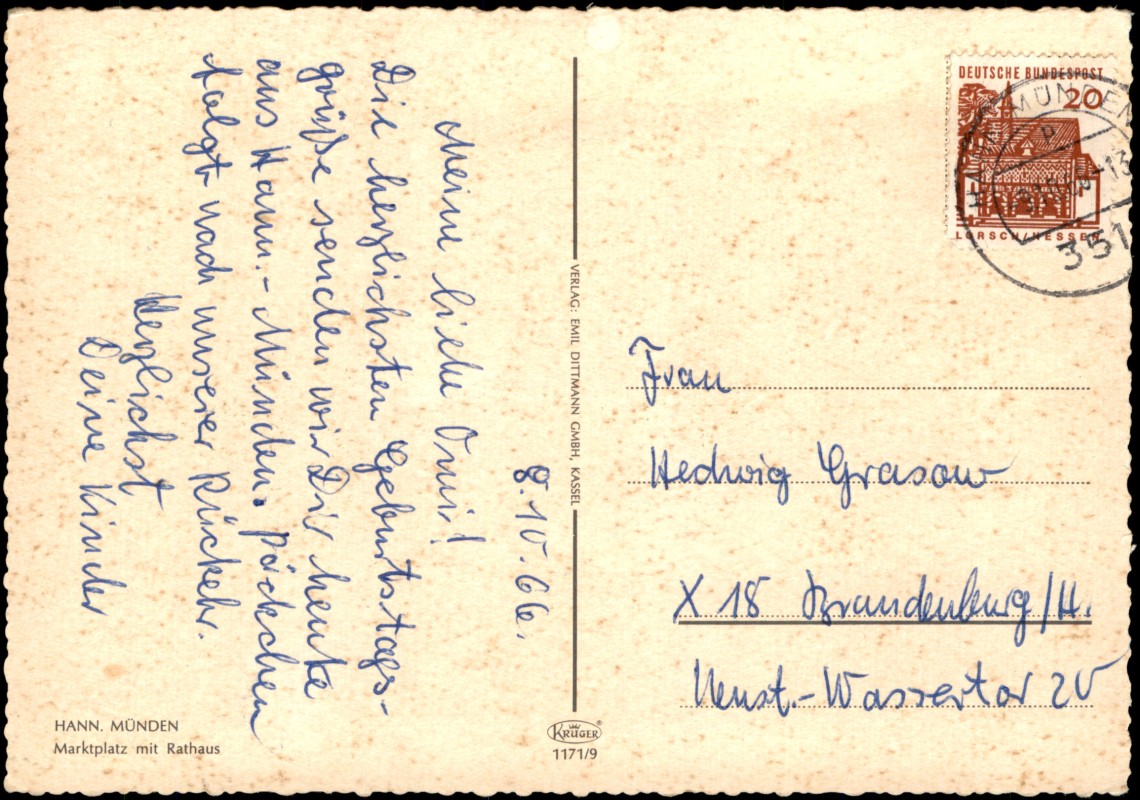 8.10.66.
Meine liebe Omi!
Die herzlichsten Geburtstags-
grüße senden wir Dir heute
aus Hann.-Münden. Päckchen
folgt nach unserer Rückkehr.
Herzlichst
Deine Kinder
HANN. MÜNDEN
Marktplatz mit Rathaus
VERLAG: EMIL DITTMANN GMBH, KASSEL
KRÜGER®
1171/9
DEUTSCHE BUNDESPOST
20
LORSCH/HESSEN
MÜNDEN
351
Frau
Hedwig Grasow
X 18 Brandenburg/H.
Neust.-Wassertor 20